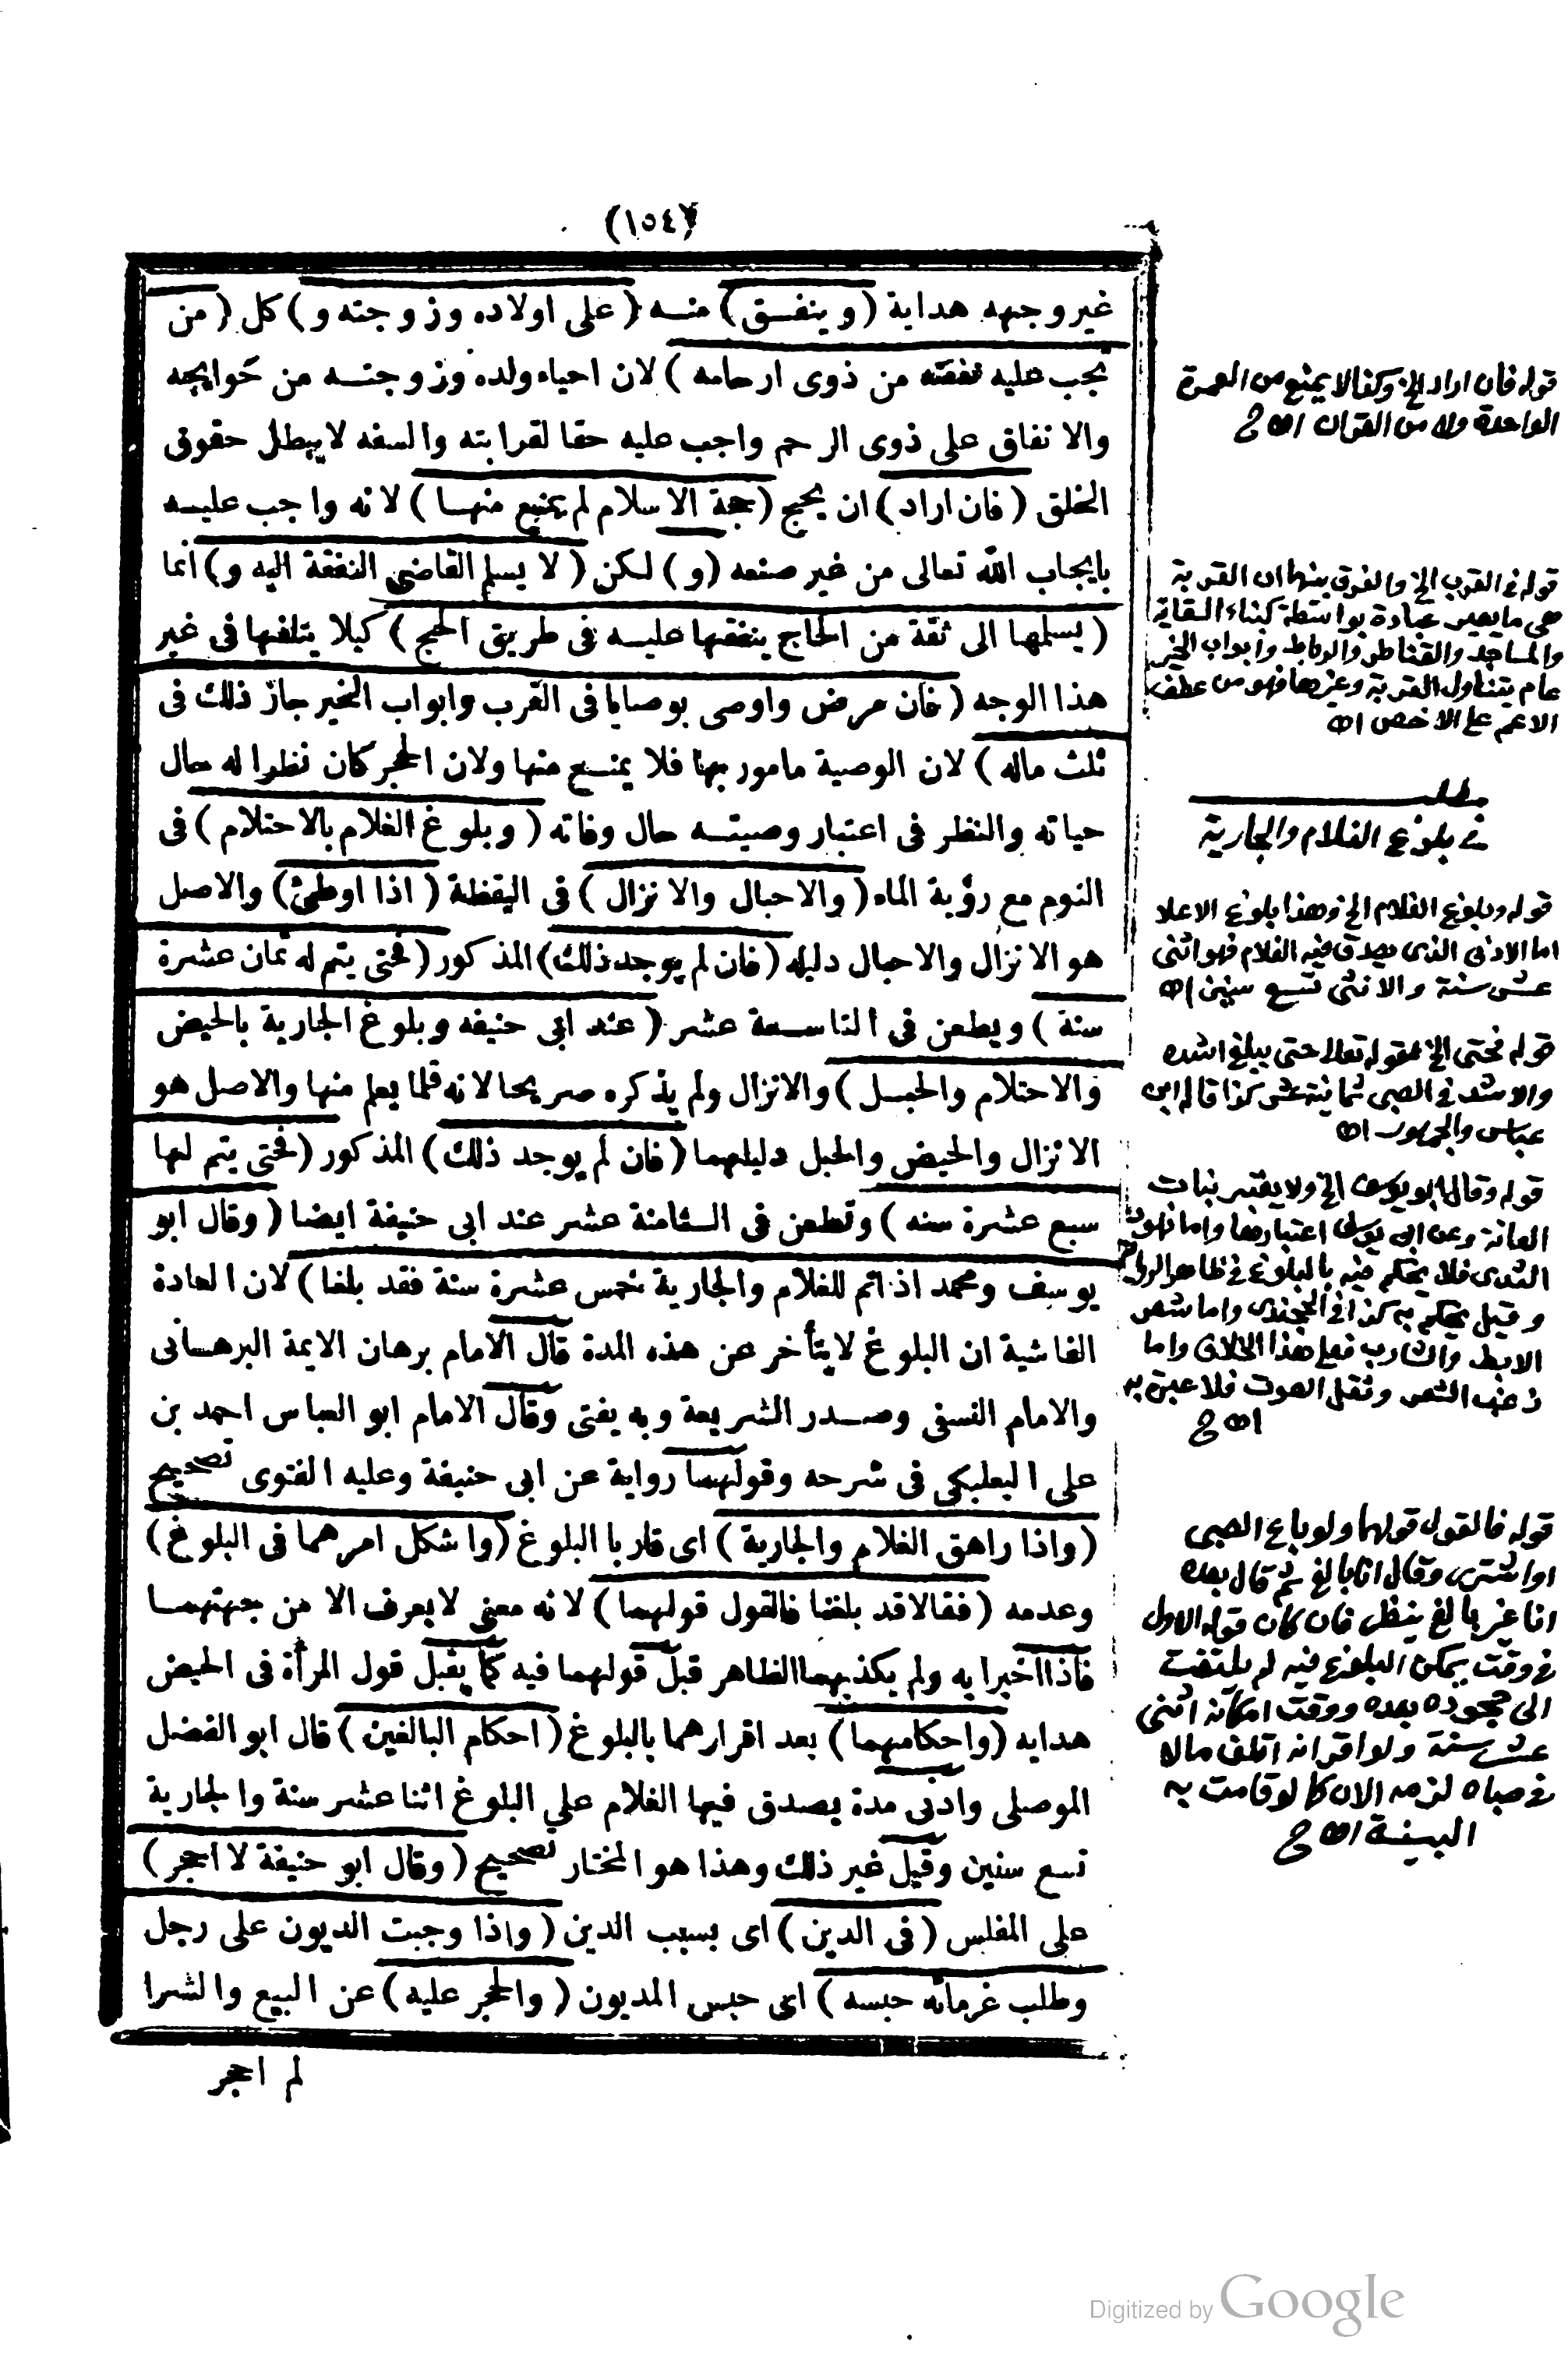 (١٥٤)
غير وجهه هداية (وينفق) منه (على اولاده وزوجته و) كل (من
تجب عليه نفقته من ذوى ارحامه) لان احياء ولده وزوجته من حوايجه
والانفاق على ذوى الرحم واجب عليه حقا لقرابته والسفه لايبطل حقوق
الخلق (فان اراد) ان يحج (حجة الاسلام لم يمنع منها) لانه واجب عليه
بايجاب الله تعالى من غير صنعه (و) لكن (لا يسلم القاضى النفقة اليه و) انما
(يسلمها الى ثقة من الحاج ينفقها عليه فى طريق الحج) كيلا يتلفها فى غير
هذا الوجه (فان مرض واوصى بوصايا فى القرب وابواب الخير جاز ذلك فى
ثلث ماله) لان الوصية مامور بها فلا يمنع منها ولان الحجر كان نظرا له حال
حياته والنظر فى اعتبار وصيته حال وفاته (وبلوغ الغلام بالاحتلام) فى
النوم مع رؤية الماء (والاحبال والانزال) فى اليقظة (اذا اوطئ) والاصل
هو الانزال والاحبال دليله (فان لم يوجد ذلك) المذكور (فحتى يتم له ثمان عشرة
سنة) ويطعن فى التاسعة عشر (عند ابى حنيفه وبلوغ الجارية بالحيض
والاحتلام والحبل) والانزال ولم يذكره صريحا لانه قلما يعلم منها والاصل هو
الانزال والحيض والحبل دليلهما (فان لم يوجد ذلك) المذكور (فحتى يتم لها
سبع عشرة سنه) وتطعن فى الثامنة عشر عند ابى حنيفة ايضا (وقال ابو
يوسف ومحمد اذا تم للغلام والجارية خمس عشرة سنة فقد بلغا) لان العادة
الفاشية ان البلوغ لايتأخر عن هذه المدة قال الامام برهان الايمة البرهانى
والامام النسفى وصدر الشريعة وبه يفتى وقال الامام ابو العباس احمد بن
على البعلبكى فى شرحه وقولهما رواية عن ابى حنيفة وعليه الفتوى تصحيح
(واذا راهق الغلام والجارية) اى قاربا البلوغ (واشكل امرهما فى البلوغ)
وعدمه (فقالا قد بلغنا فالقول قولهما) لانه معنى لايعرف الا من جهتهما
فاذا اخبرا به ولم يكذبهما الظاهر قبل قولهما فيه كما يقبل قول المرأة فى الحيض
هدايه (واحكامهما) بعد اقرارهما بالبلوغ (احكام البالغين) قال ابو الفضل
الموصلى وادنى مدة يصدق فيها الغلام على البلوغ اثنا عشر سنة والجارية
تسع سنين وقيل غير ذلك وهذا هو المختار تصحيح (وقال ابو حنيفة لا احجر)
على المفلس (فى الدين) اى بسبب الدين (واذا وجبت الديون على رجل
وطلب غرمائه حبسه) اى حبس المديون (والحجر عليه) عن البيع والشرا
لم احجر
قوله فان اراد الخ وكذا لا يمنع من العمرة
الواحدة ولا من القران اه ج
قوله فى القرب الخ والفرق بينهما ان القربة
هى ما يصير عبادة بواسطة كبناء السقاية
والمساجد والقناطر والرباط وابواب الخير
عام يتناول القربة وغيرها فهو من عطف
الاعم على الاخص اه
مطلب
فى بلوغ الغلام والجارية
قوله وبلوغ الغلام الخ وهذا بلوغ الاعلا
اما الادنى الذى يصدق فيه الغلام فهو اثنى
عشر سنة والانثى تسع سنين اه
قوله فحتى الخ لقوله تعالى حتى يبلغ اشده
والاشد فى الصبى ثمانية عشر كذا قاله ابن
عباس والجمهور اه
قوله وقال ابو يوسف الخ ولا يعتبر نبات
العانة وعن ابى يوسف اعتبارها واما نهود
الثدى فلا يحكم فيه بالبلوغ فى ظاهر الرواية
وقيل يحكم به كذا فى الخجندى واما شعر
الابط والشارب فعلى هذا الخلاف واما
زغب الشعر وثقل الصوت فلا عبرة به
اه ج
قوله فالقول قولهما ولو باع الصبى
او اشترى وقال انا بالغ ثم قال بعده
انا غير بالغ ينظر فان كان قوله الاول
فى وقت يمكن البلوغ فيه لم يلتفت
الى جحوده بعده ووقت امكانه اثنى
عشر سنة ولو اقر انه اتلف مالا
فى صباه لزمه الان كما لو قامت به
البينة اه ج
Digitized by Google